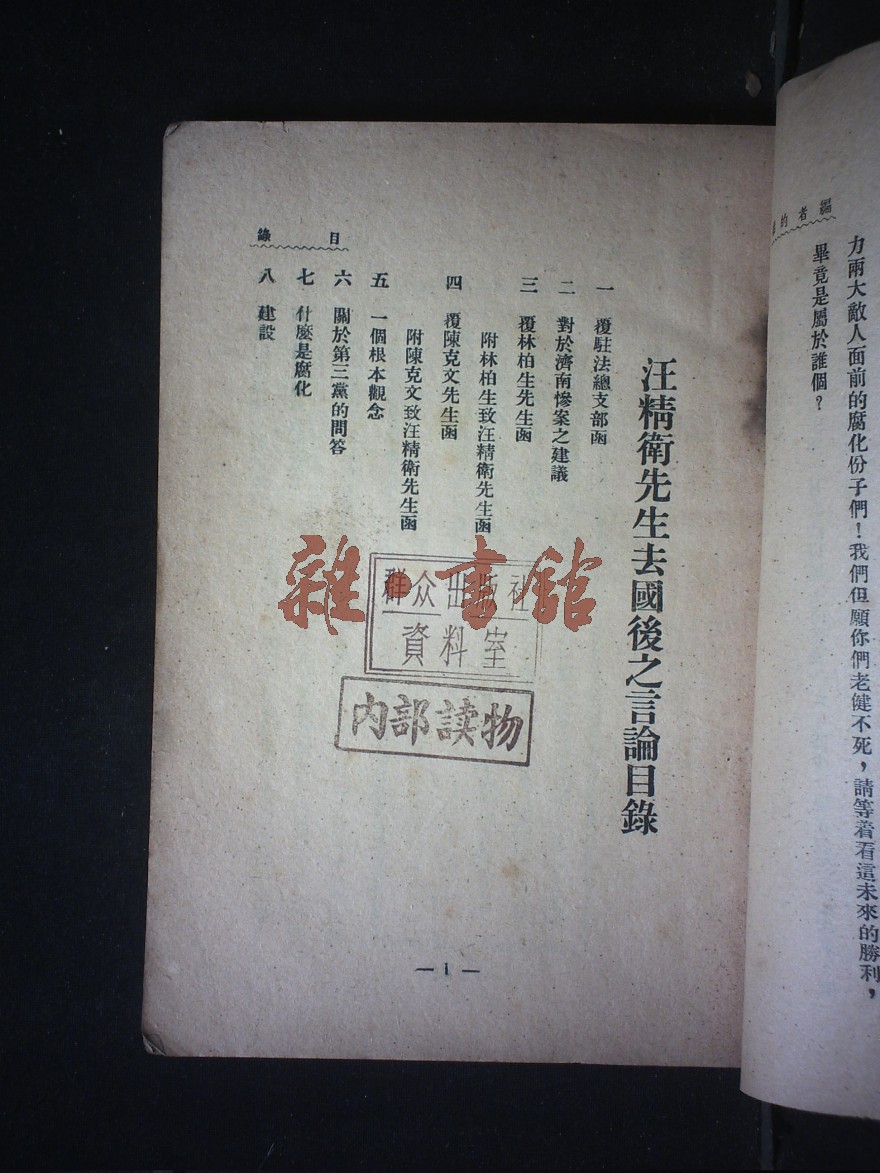 編者的
力兩大敵人面前的腐化份子們！我們但願你們老健不死，請等着看這未來的勝利，
畢竟是屬於誰個？
汪精衛先生去國後之言論目錄
一 覆駐法總支部函
二 對於濟南慘案之建議
三 覆林柏生先生函
附林柏生致汪精衛先生函
四 覆陳克文先生函
附陳克文致汪精衛先生函
五 一個根本觀念
六 關於第三黨的問答
七 什麼是腐化
八 建設
目錄
雜書館
群众出版社
資料室
内部读物
— 1 —